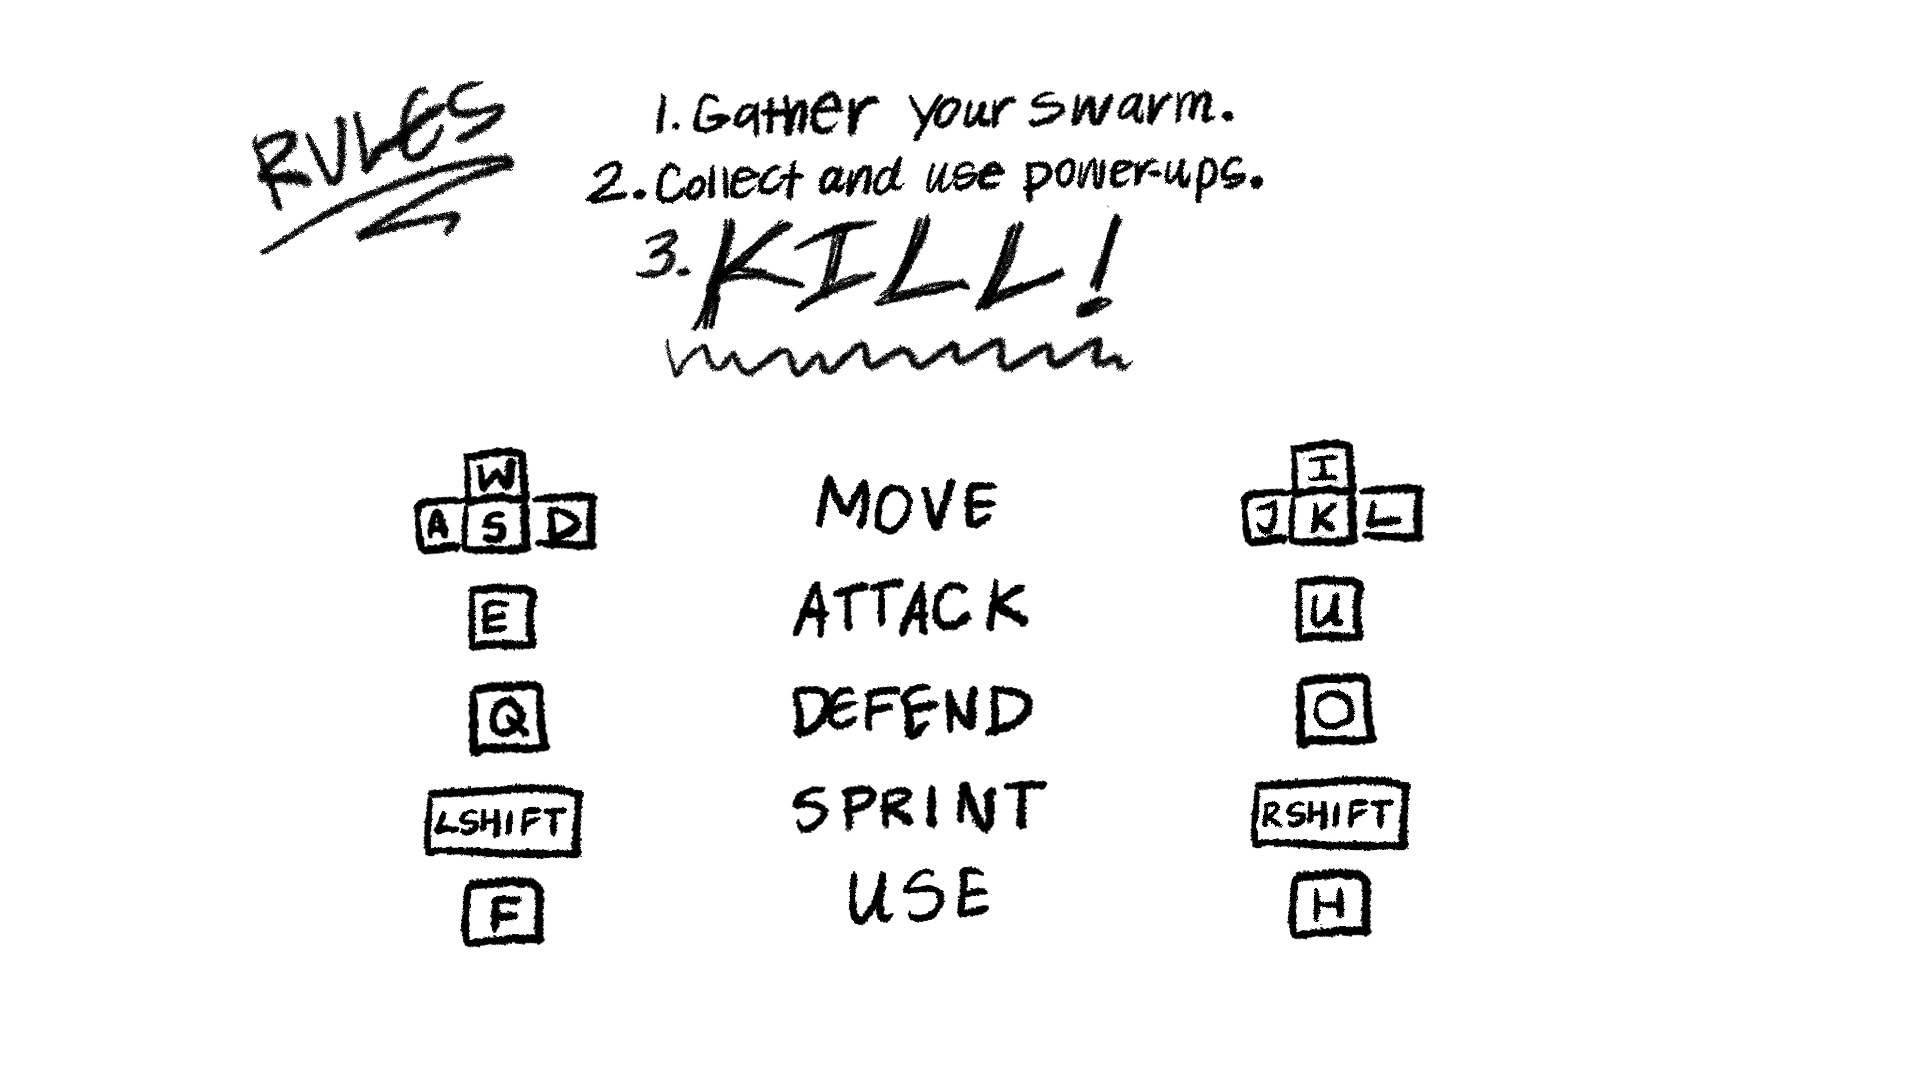 RULES
1. Gather your swarm.
2. Collect and use power-ups.
3. KILL!
W
A S D
MOVE
I
J K L
E ATTACK U
Q DEFEND O
LSHIFT SPRINT RSHIFT
F USE H